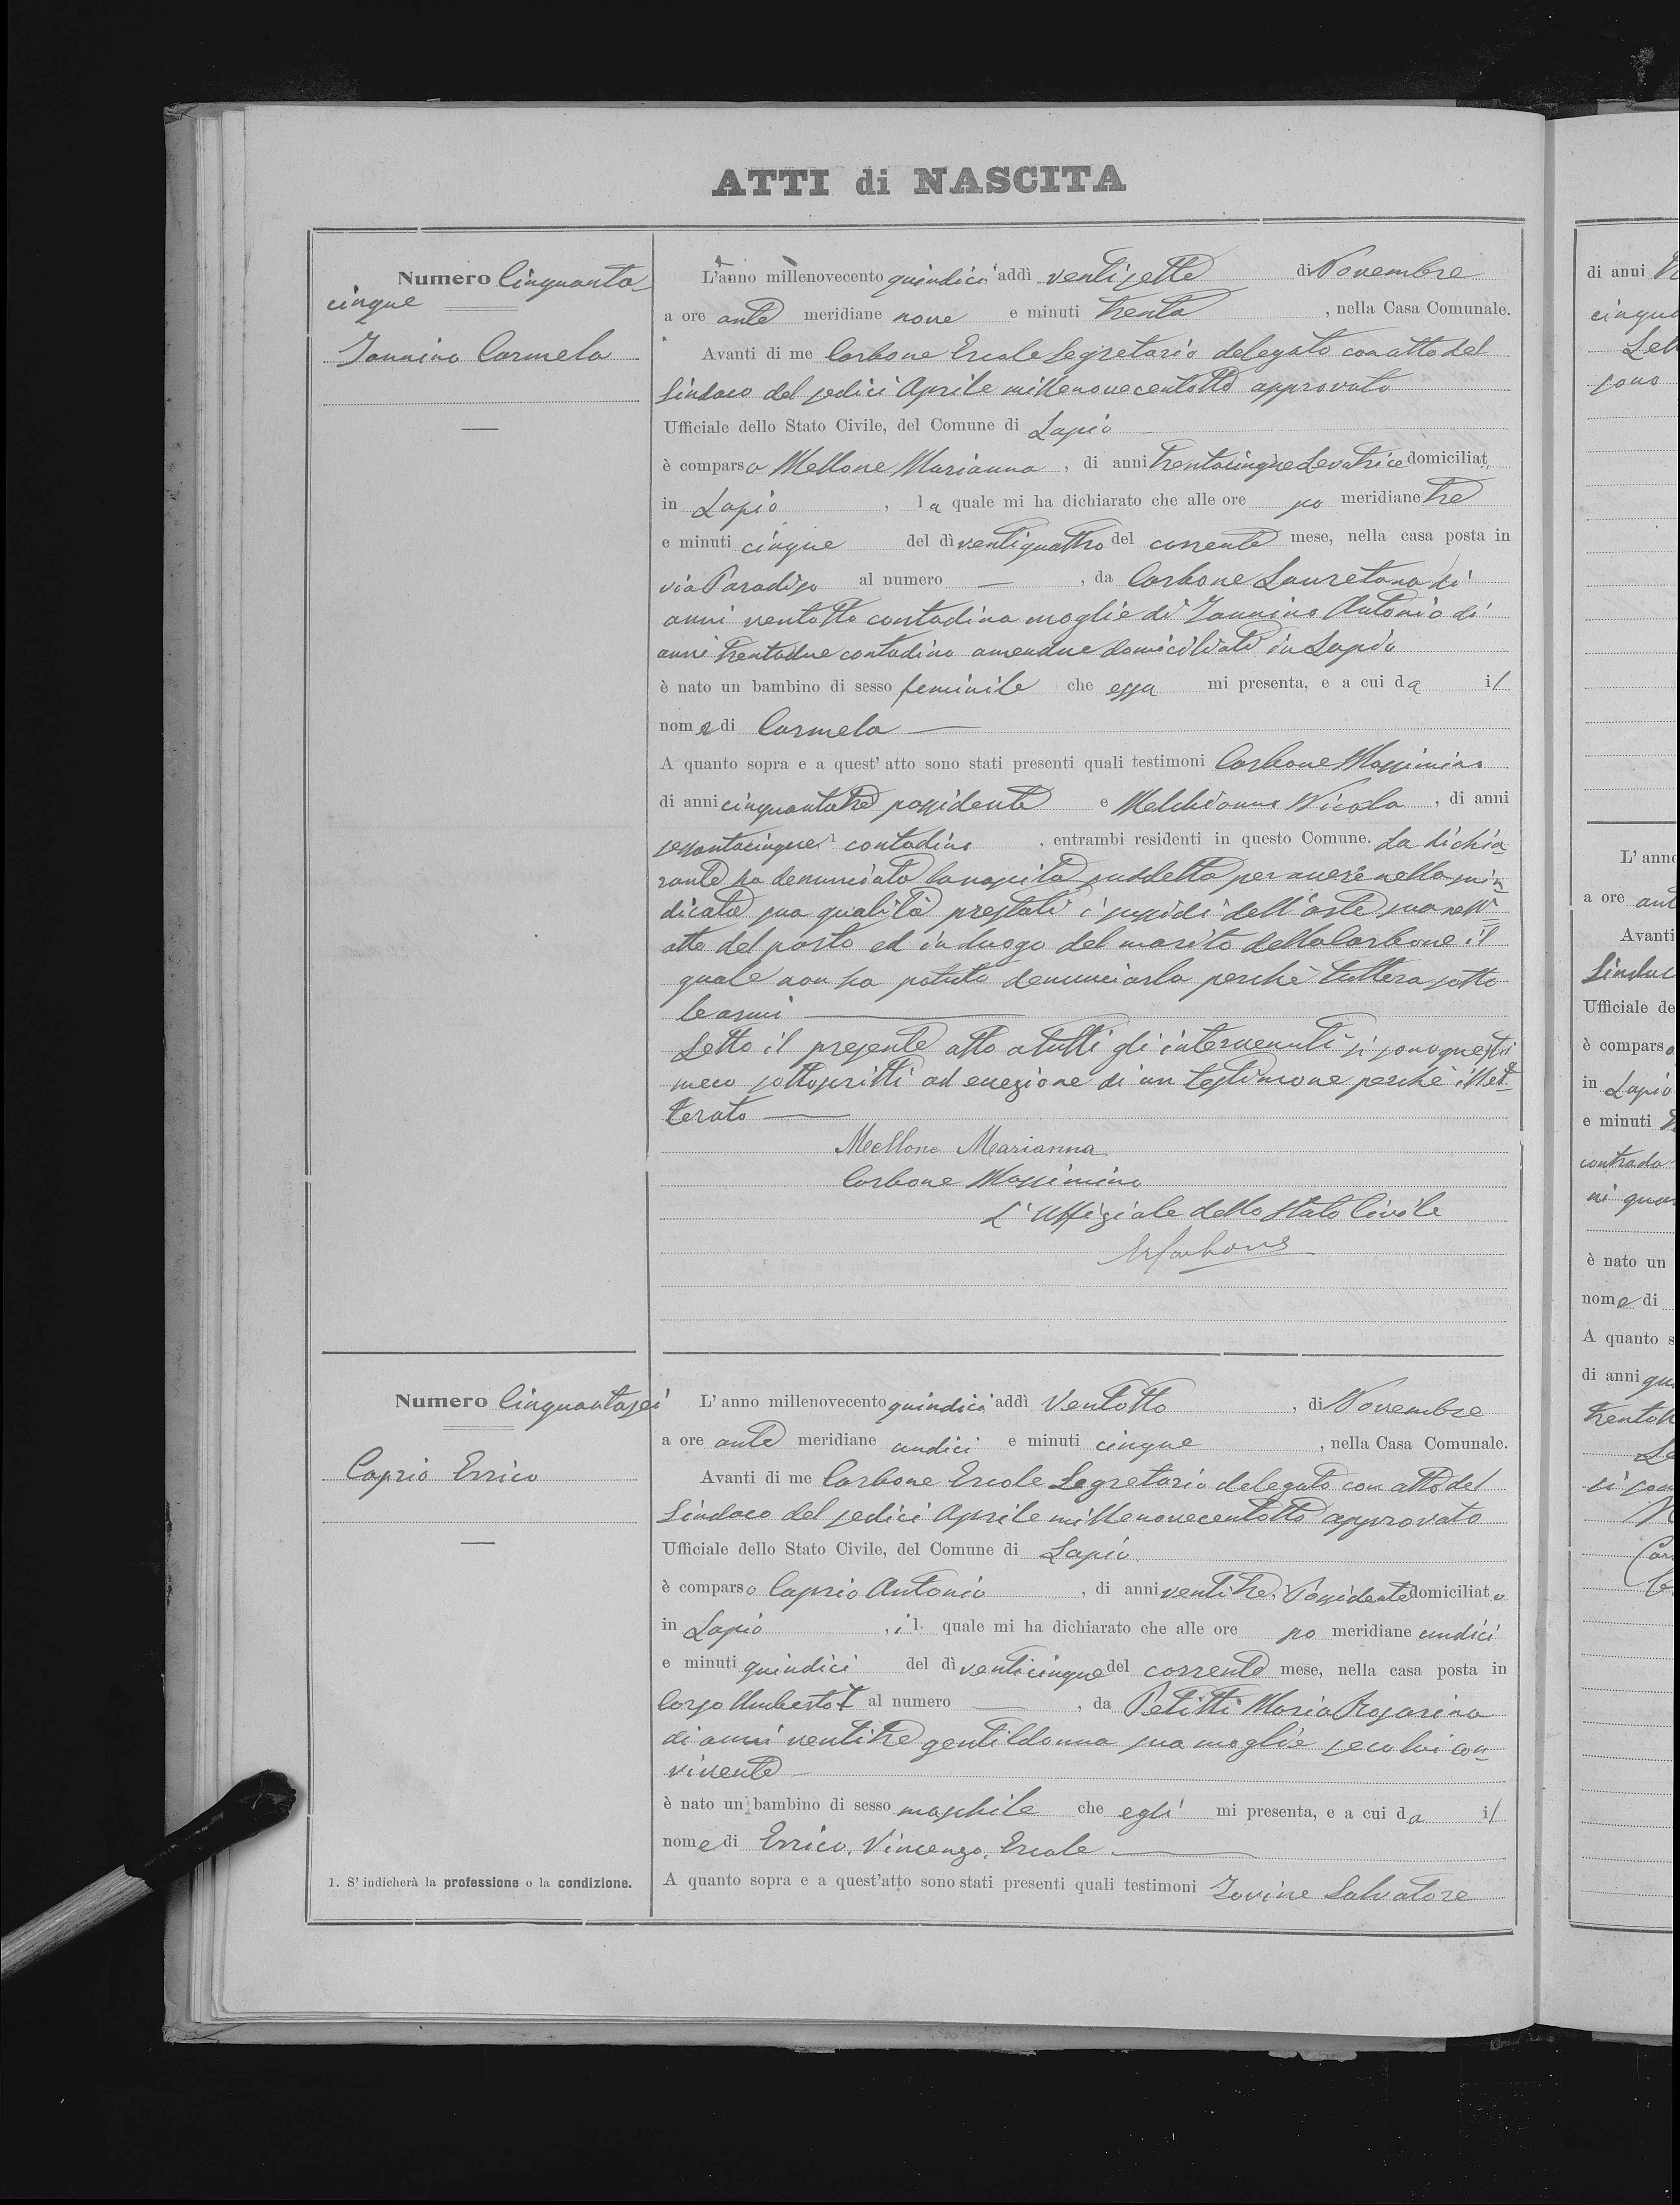 ATTI di NASCITA
Numero Cinquanta
cinque
Iannino Carmela
L'anno millenovecento quindici addì ventisette di Novembre
a ore ante meridiane nove e minuti trenta, nella Casa Comunale.
Avanti di me Carbone Ercole Segretario delegato con atto del
Sindaco del sedici Aprile millenovecentotto approvato
Ufficiale dello Stato Civile, del Comune di Lapio
è comparsa Mellone Marianna, di anni trentacinque Levatrice domiciliat
in Lapio, la quale mi ha dichiarato che alle ore po meridiane tre
e minuti cinque del dì ventiquattro del corrente mese, nella casa posta in
via Paradiso al numero —, da Carbone Lauretana di
anni ventotto contadina moglie di Iannino Antonio di
anni trentadue contadino amendue domiciliati in Lapio
è nato un bambino di sesso feminile che essa mi presenta, e a cui da il
nome di Carmela —
A quanto sopra e a quest'atto sono stati presenti quali testimoni Carbone Massimino
di anni cinquantatre possidente e Melchionna Nicola, di anni
sessantacinque contadino, entrambi residenti in questo Comune. La dichia-
rante ha denunciato la nascita suddetta per avere nella sùin-
dicata sua qualità prestati i sussidi dell'arte sua nell'
atto del parto ed in luogo del marito della Carbone il
quale non ha potuto denunciarla perchè tuttera sotto
le armi —
Letto il presente atto a tutti gli intervenuti si sono questi
meco sottoscritti ad eccezione di un testimone perchè illet-
terato —
Mellone Marianna
Carbone Massimino
L'Uffiziale dello Stato Civile
ErCarbone
Numero Cinquantasei
Caprio Errico
L'anno millenovecento quindici addì Ventotto, di Novembre
a ore ante meridiane undici e minuti cinque, nella Casa Comunale.
Avanti di me Carbone Ercole Segretario delegato con atto del
Sindaco del sedici Aprile millenovecentotto approvato
Ufficiale dello Stato Civile, del Comune di Lapio
è comparso Caprio Antonio, di anni ventitre, Possidente domiciliato
in Lapio, il quale mi ha dichiarato che alle ore po meridiane undici
e minuti quindici del dì venticinque del corrente mese, nella casa posta in
Corso Umberto I al numero —, da Petitti Maria Rosarina
di anni ventitre gentildonna sua moglie seco lui con-
vivente —
è nato un bambino di sesso maschile che egli mi presenta, e a cui da il
nome di Errico, Vincenzo, Ercole —
A quanto sopra e a quest'atto sono stati presenti quali testimoni Iovine Salvatore
1. S'indicherà la professione o la condizione.
di anni
cinque
Let
sono
L'anno
a ore ant
Avanti
Sindac
Ufficiale de
è comparso
in Lapio
e minuti
contrada
ni qua
è nato un
nome di
A quanto s
di anni qu
trentott
Le
si son